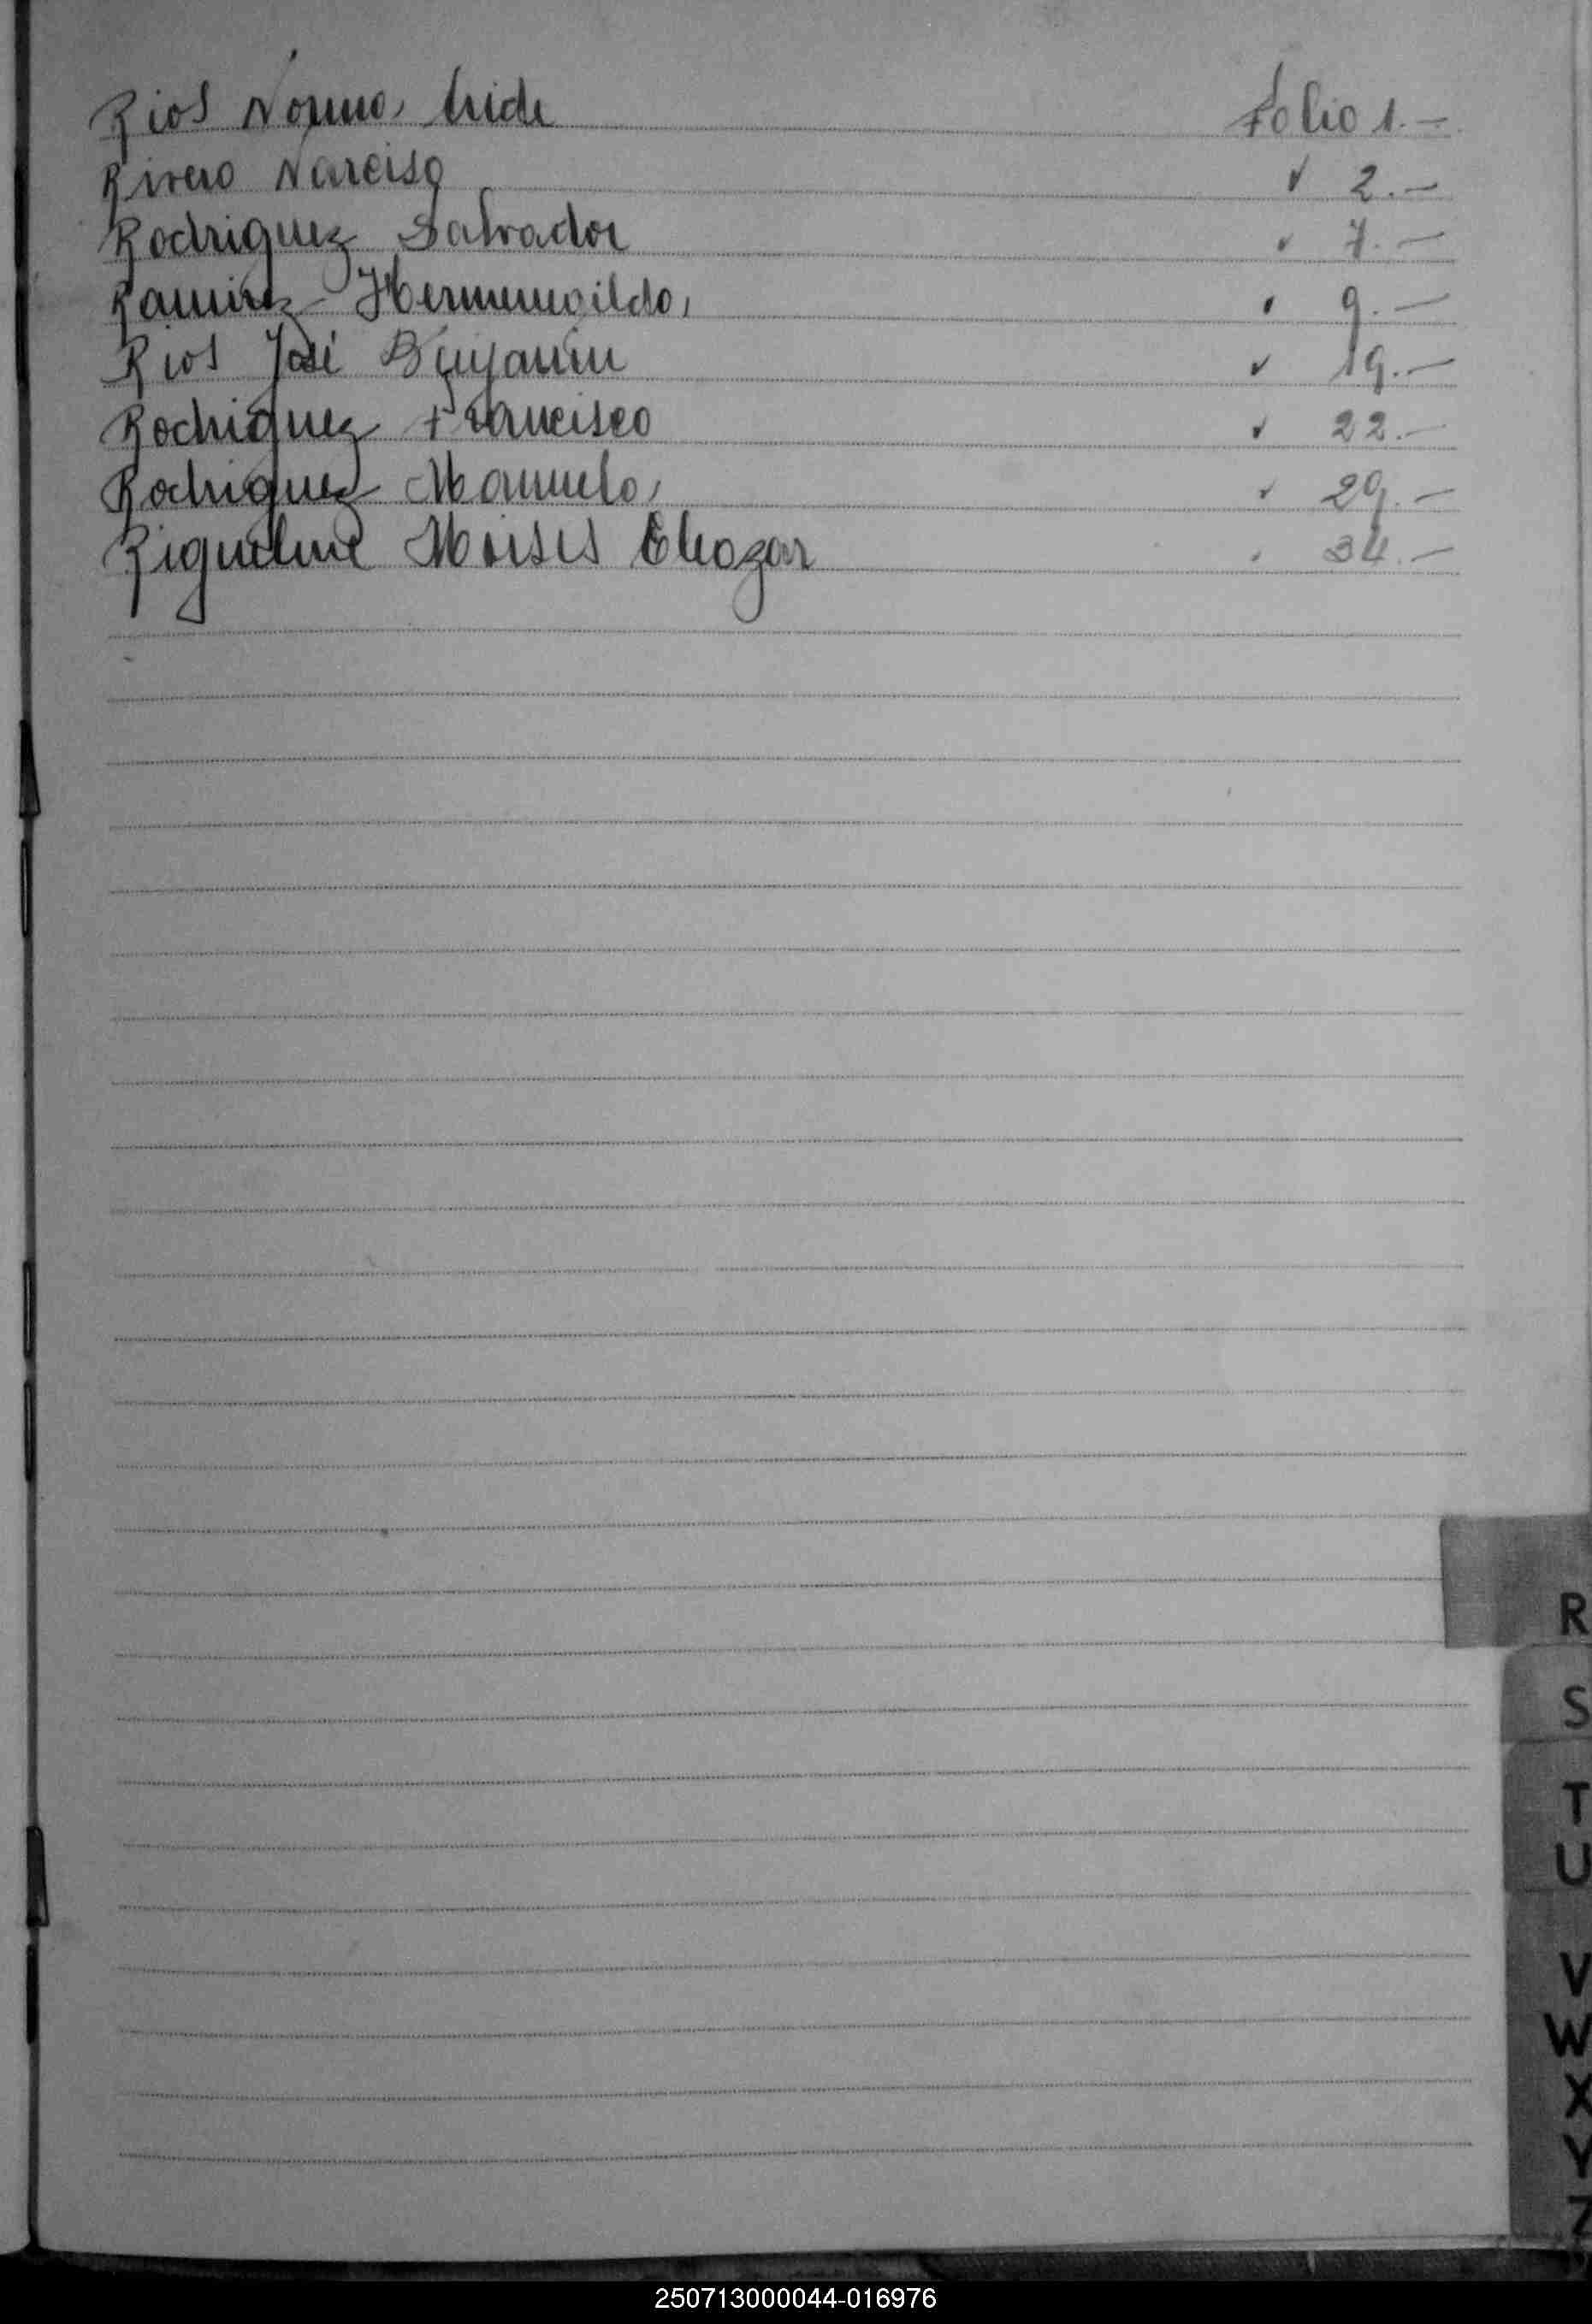 Rios Norma, Neide Folio 1.-
Rivero Narciso " 2.-
Rodriguez Salvador " 7.-
Ramirez Hermenegildo, " 9.-
Rios José Benjamin " 19.-
Rodriguez Francisco " 22.-
Rodriguez Manuela, " 29.-
Riquelme Moises Eleazar " 34.-
R
S
T
U
V
W
X
Y
Z
250713000044-016976